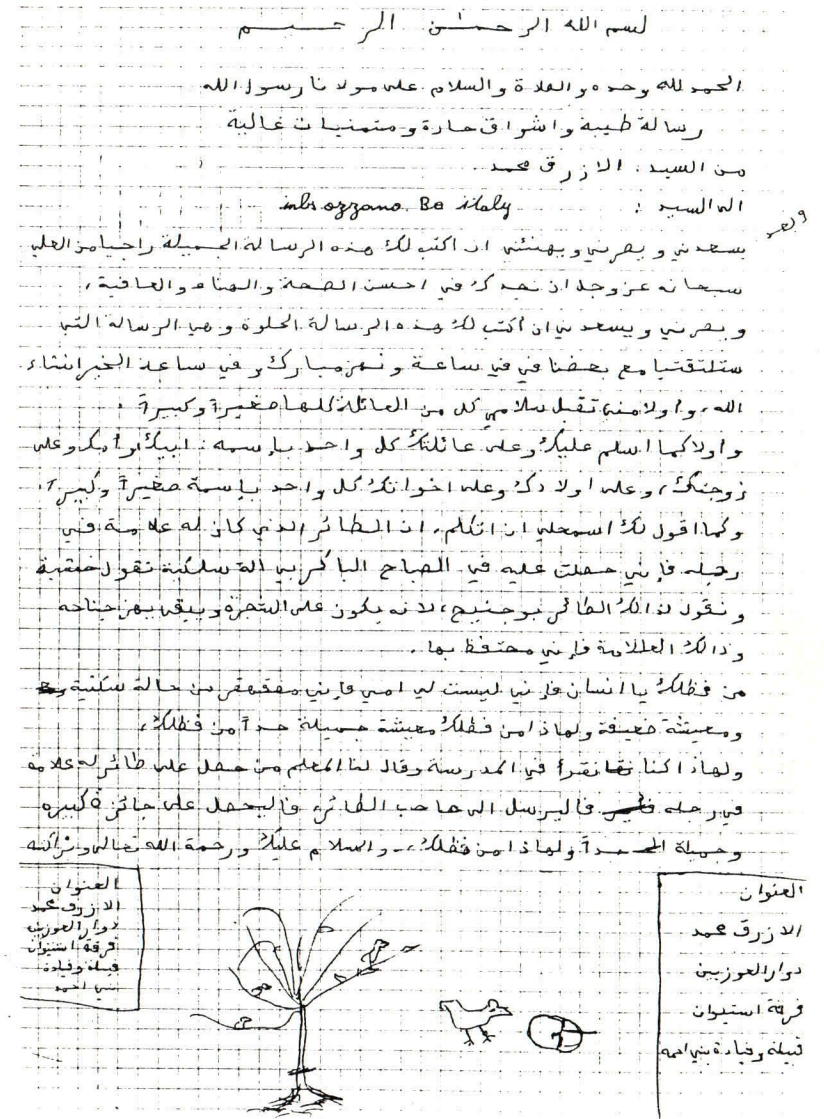 بسم الله الرحمٰن الرحيم
الحمد لله وحده والصلاة والسلام على مولانا رسول الله
رسالة طيبة واشواق حارة ومتمنيات غالية
من السيد : الازرق محمد
الى السيد : inbs ozzano Bo italy
وبعد
يسعدني ويصرني ويهنئني ان اكتب لك هذه الرسالة الجميلة راجيا من العلي
سبحانه عز وجل ان تجدك في احسن الصحة والهناء والعافية،
ويصرني ويسعدني ان أكتب لك هذه الرسالة الحلوة وهي الرسالة التي
ستلتقتيا مع بعضنا في في ساعة ونهر مبارك وفي ساعة الخير انشاء
الله، وأولا مني تقبل سلامي كل من العائلة كلها صغيراً وكبيراً.
وأولا كما اسلم عليك وعلى عائلتك كل واحد بإسمه : ابيك وأمك وعلى
زوجتك، وعلى اولادك وعلى اخوانك كل واحد بإسمة صغيراً وكبيراً،
وكما اقول لك اسمحلي ان اتكلم. ان الطائر الذي كان له علامة في
رجله فإني حصلت عليه في الصباح الباكر بي الة سلكية نقول
ونقول لذالك الطائر بوجنيح، لانه يكون على الشجرة ويبقى يهز جناحه
وذالك العلامة فإني محتفظ بها.
من فظلك يا انسان فإني ليست لي امي فإني مقهقهر من حالة سكنية
ومعيشة ضعيفة ولهاذا من فظلك معيشة جميلة جداً من فظلك،
ولهاذا كنا نقرأ في المدرسة وقال لنا المعلم من حصل على طائر له علامة
في رجله فاليرسل الى صاحب الطائر، فاليحصل على جائزة كبيرة
وجميلة جداً ولهاذا من فظلك،. والسلام عليك ورحمة الله تعالى وبركته
العنوان
الازرق محمد
دوار العوزيين
فرقة استيوان
قبيلة وقيادة
بني احمد
العنوان
الازرق محمد
دوار العوزيين
فرقة استيوان
قبيلة وقيادة بني احمد